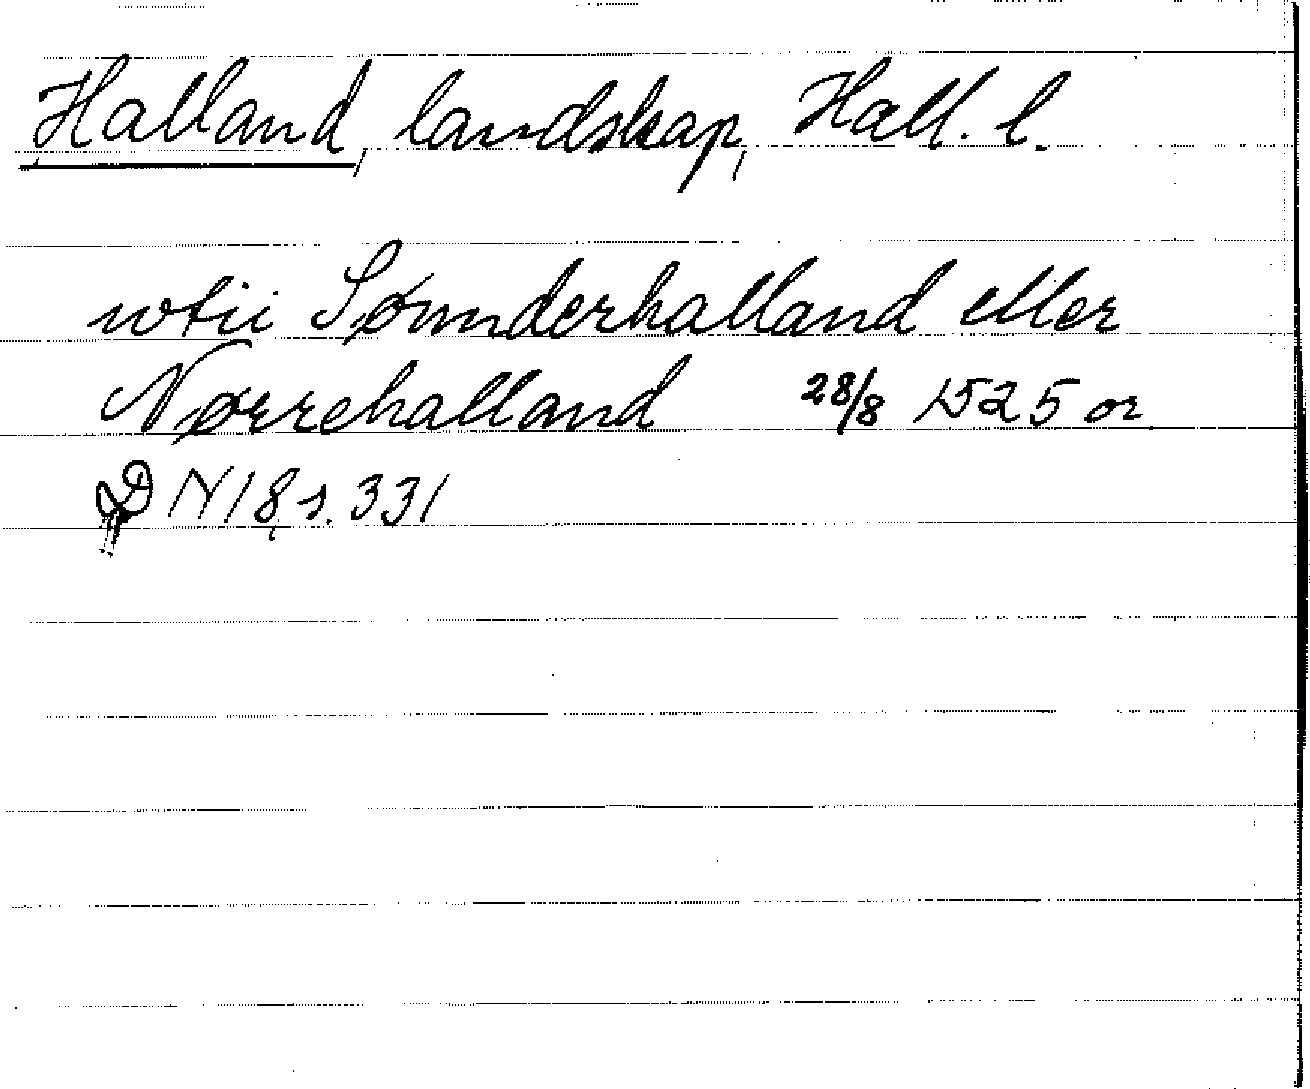 Halland, landskap, Hall. l.
wtii Sønnderhalland eller
Nørrehalland 28/8 1525 or.
DN 18, s. 331